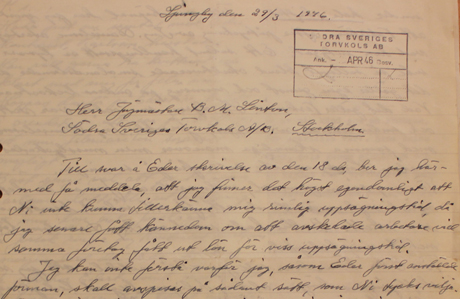 Ljungby den 29/3 1946.
SÖDRA SVERIGES
TORVKOLS AB
Ank. - APR 46
Herr Jägmästare B. M. Linton,
Södra Sveriges Torvkols A/B. Stockholm
Till svar å Eder skrivelse av den 18 ds, ber jag här-
med få meddela, att jag finner det högst egendomligt att
Ni inte kunna tillerkänna mig rimlig uppsägningstid, då
jag senare fått kännedom om att avskedade arbetare vid
samma företag fått ut lön för viss uppsägningstid.
Jag kan inte förstå varför jag, såsom Eder först anställde
förman, skall avspisas på sådant sätt, som Ni